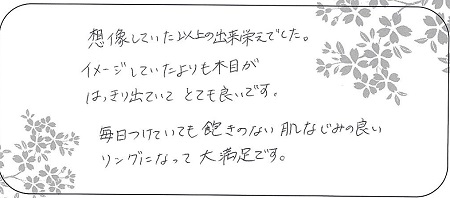 想像していた以上の出来栄えでした。
イメージしていたよりも木目が
はっきり出ていて とても良いです。
毎日つけていても 飽きのない 肌なじみの良い
リングになって 大満足です。